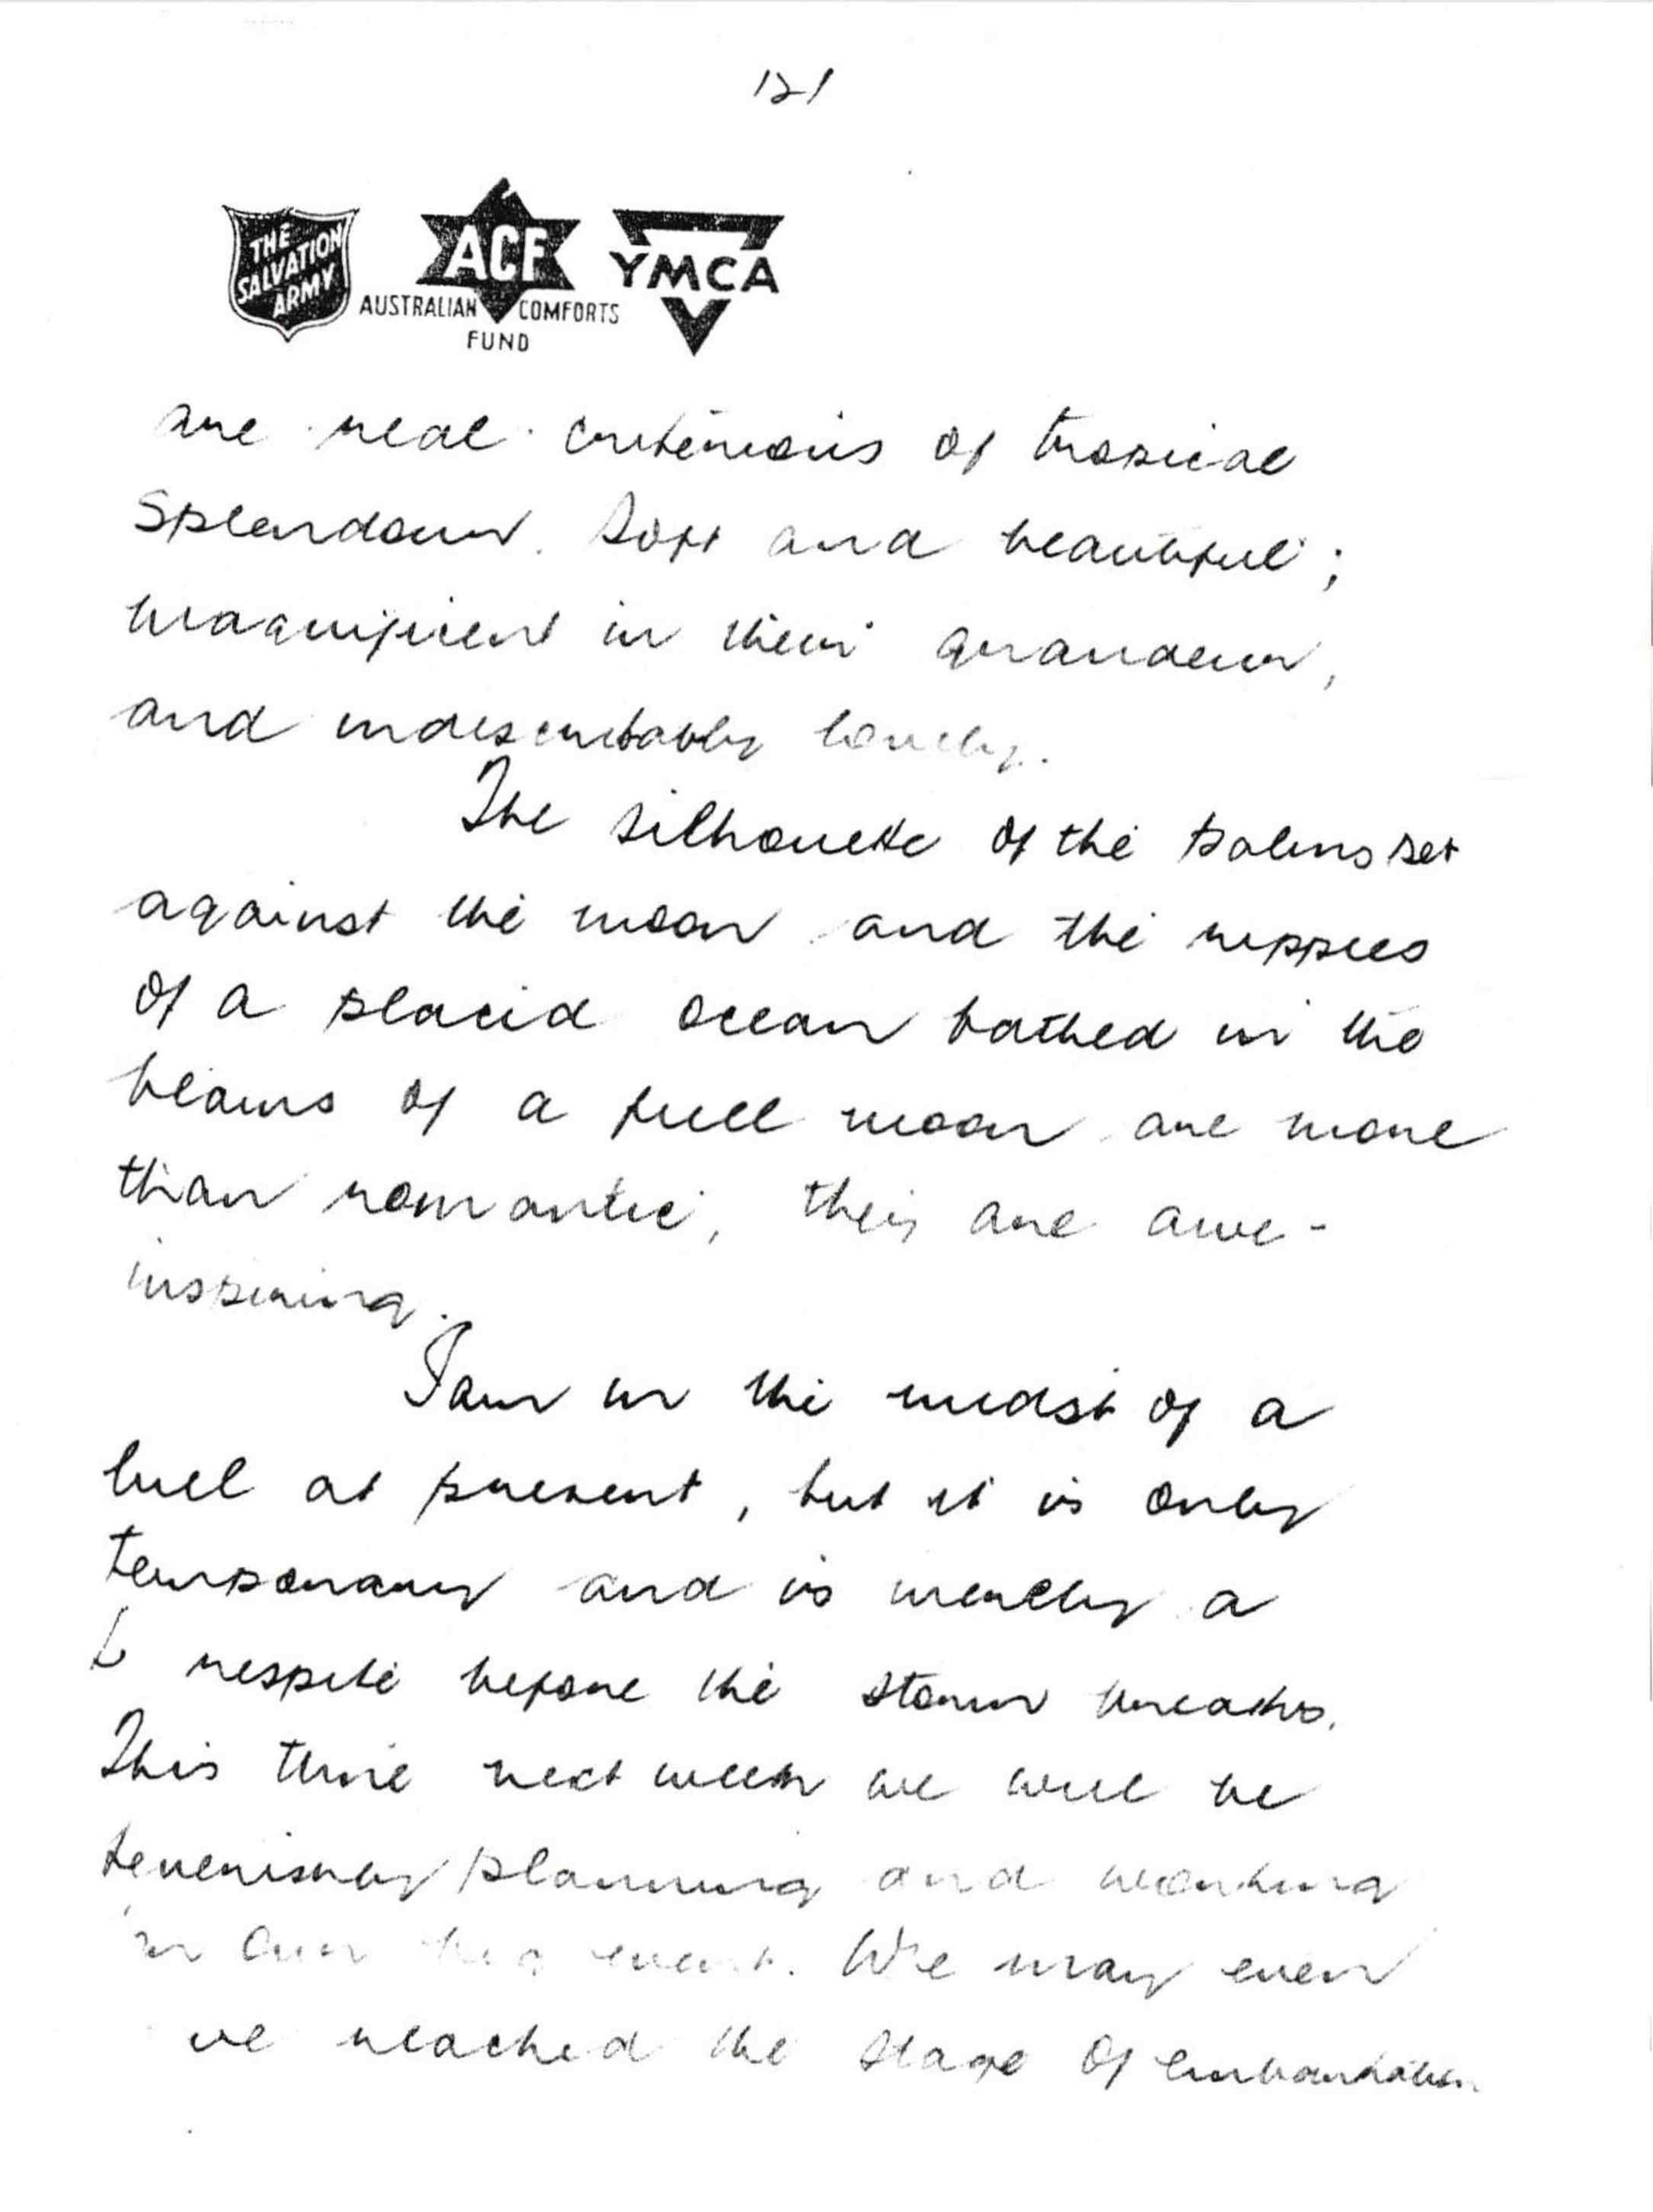 12/
THE SALVATION ARMY
ACF
AUSTRALIAN COMFORTS FUND
YMCA
are real criterions of tropical
splendour. Soft and beautiful;
magnificent in their grandeur,
and indescribably lovely.
The silhouette of the palms set
against the moon and the ripples
of a placid ocean bathed in the
beams of a full moon are more
than romantic, they are awe-
inspiring.
I am in the midst of a
lull at present, but it is only
temporary and is merely a
respite before the storm breaks.
This time next week we will be
feverishly planning and working
in our big event. We may even
ve reached the stage of embarkation